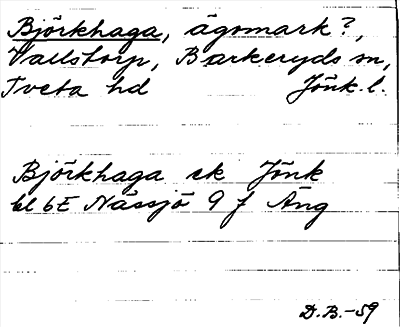 Björkhaga, ägomark?,
Vallstorp, Barkeryds sn,
Tveta hd Jönk. l.
Björkhaga ek Jönk
bl 6E Nässjö 9 f Äng
D.B.-59